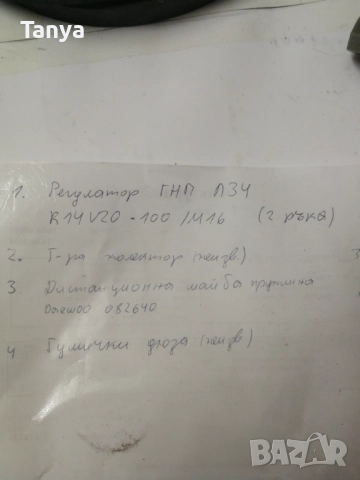 Tanya
1. Регулатор ГНП ЛЗЧ
R14V20-100/M16 (2 ръка)
2. Г-ра колектор (неизв.)
3 Дистанционна шайба пружина
Daewoo 082640
4 Гумички дюза (неизв)
BAZAR